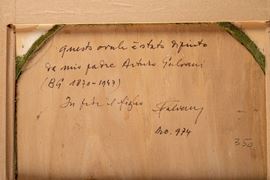 questo ovale è stato dipinto
da mio padre Arturo Galvani
(BG 1870-1947)
In fede il figlio
Galvani
350